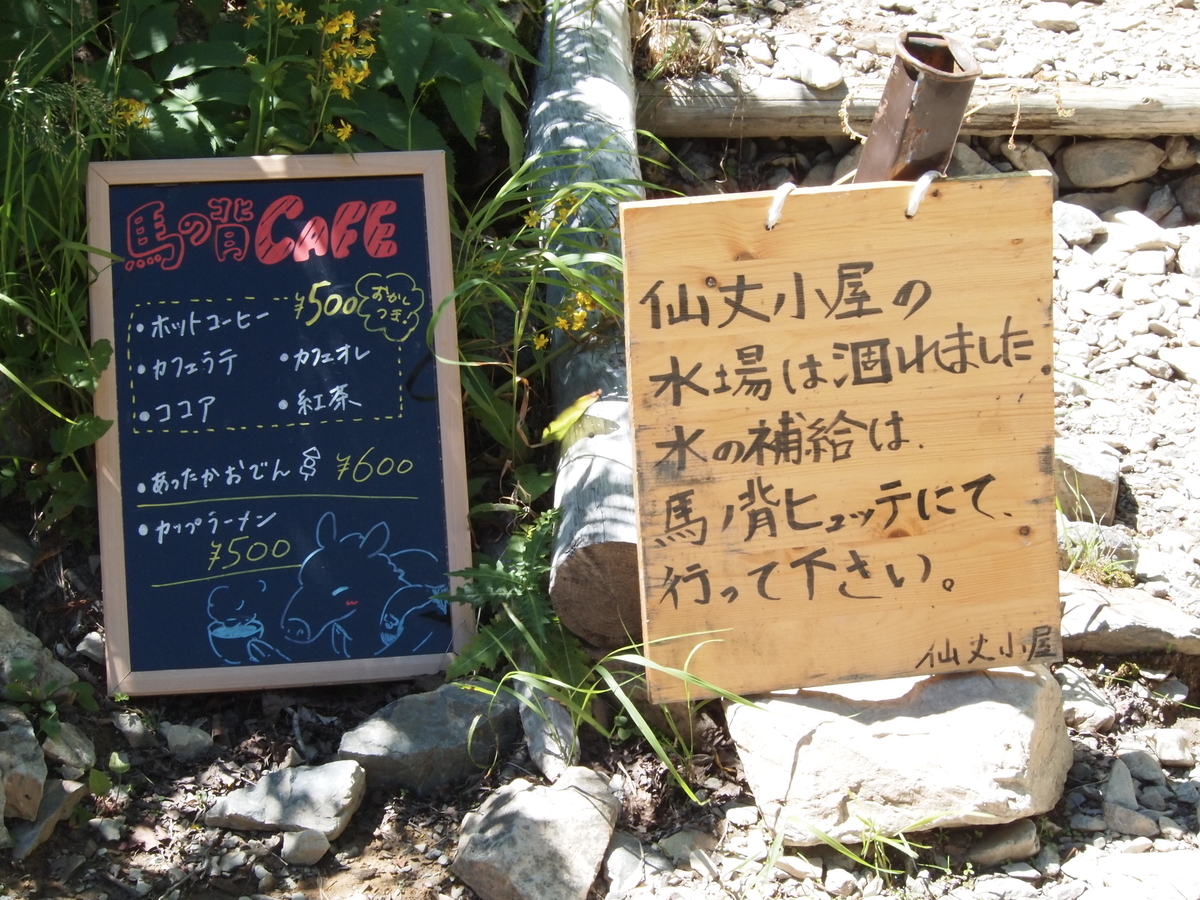 馬の背CAFE
¥500 おかしつき!
・ホットコーヒー
・カフェラテ ・カフェオレ
・ココア ・紅茶
・あったかおでん ¥600
・カップラーメン
¥500
仙丈小屋の
水場は涸れました。
水の補給は、
馬ノ背ヒュッテにて、
行って下さい。
仙丈小屋